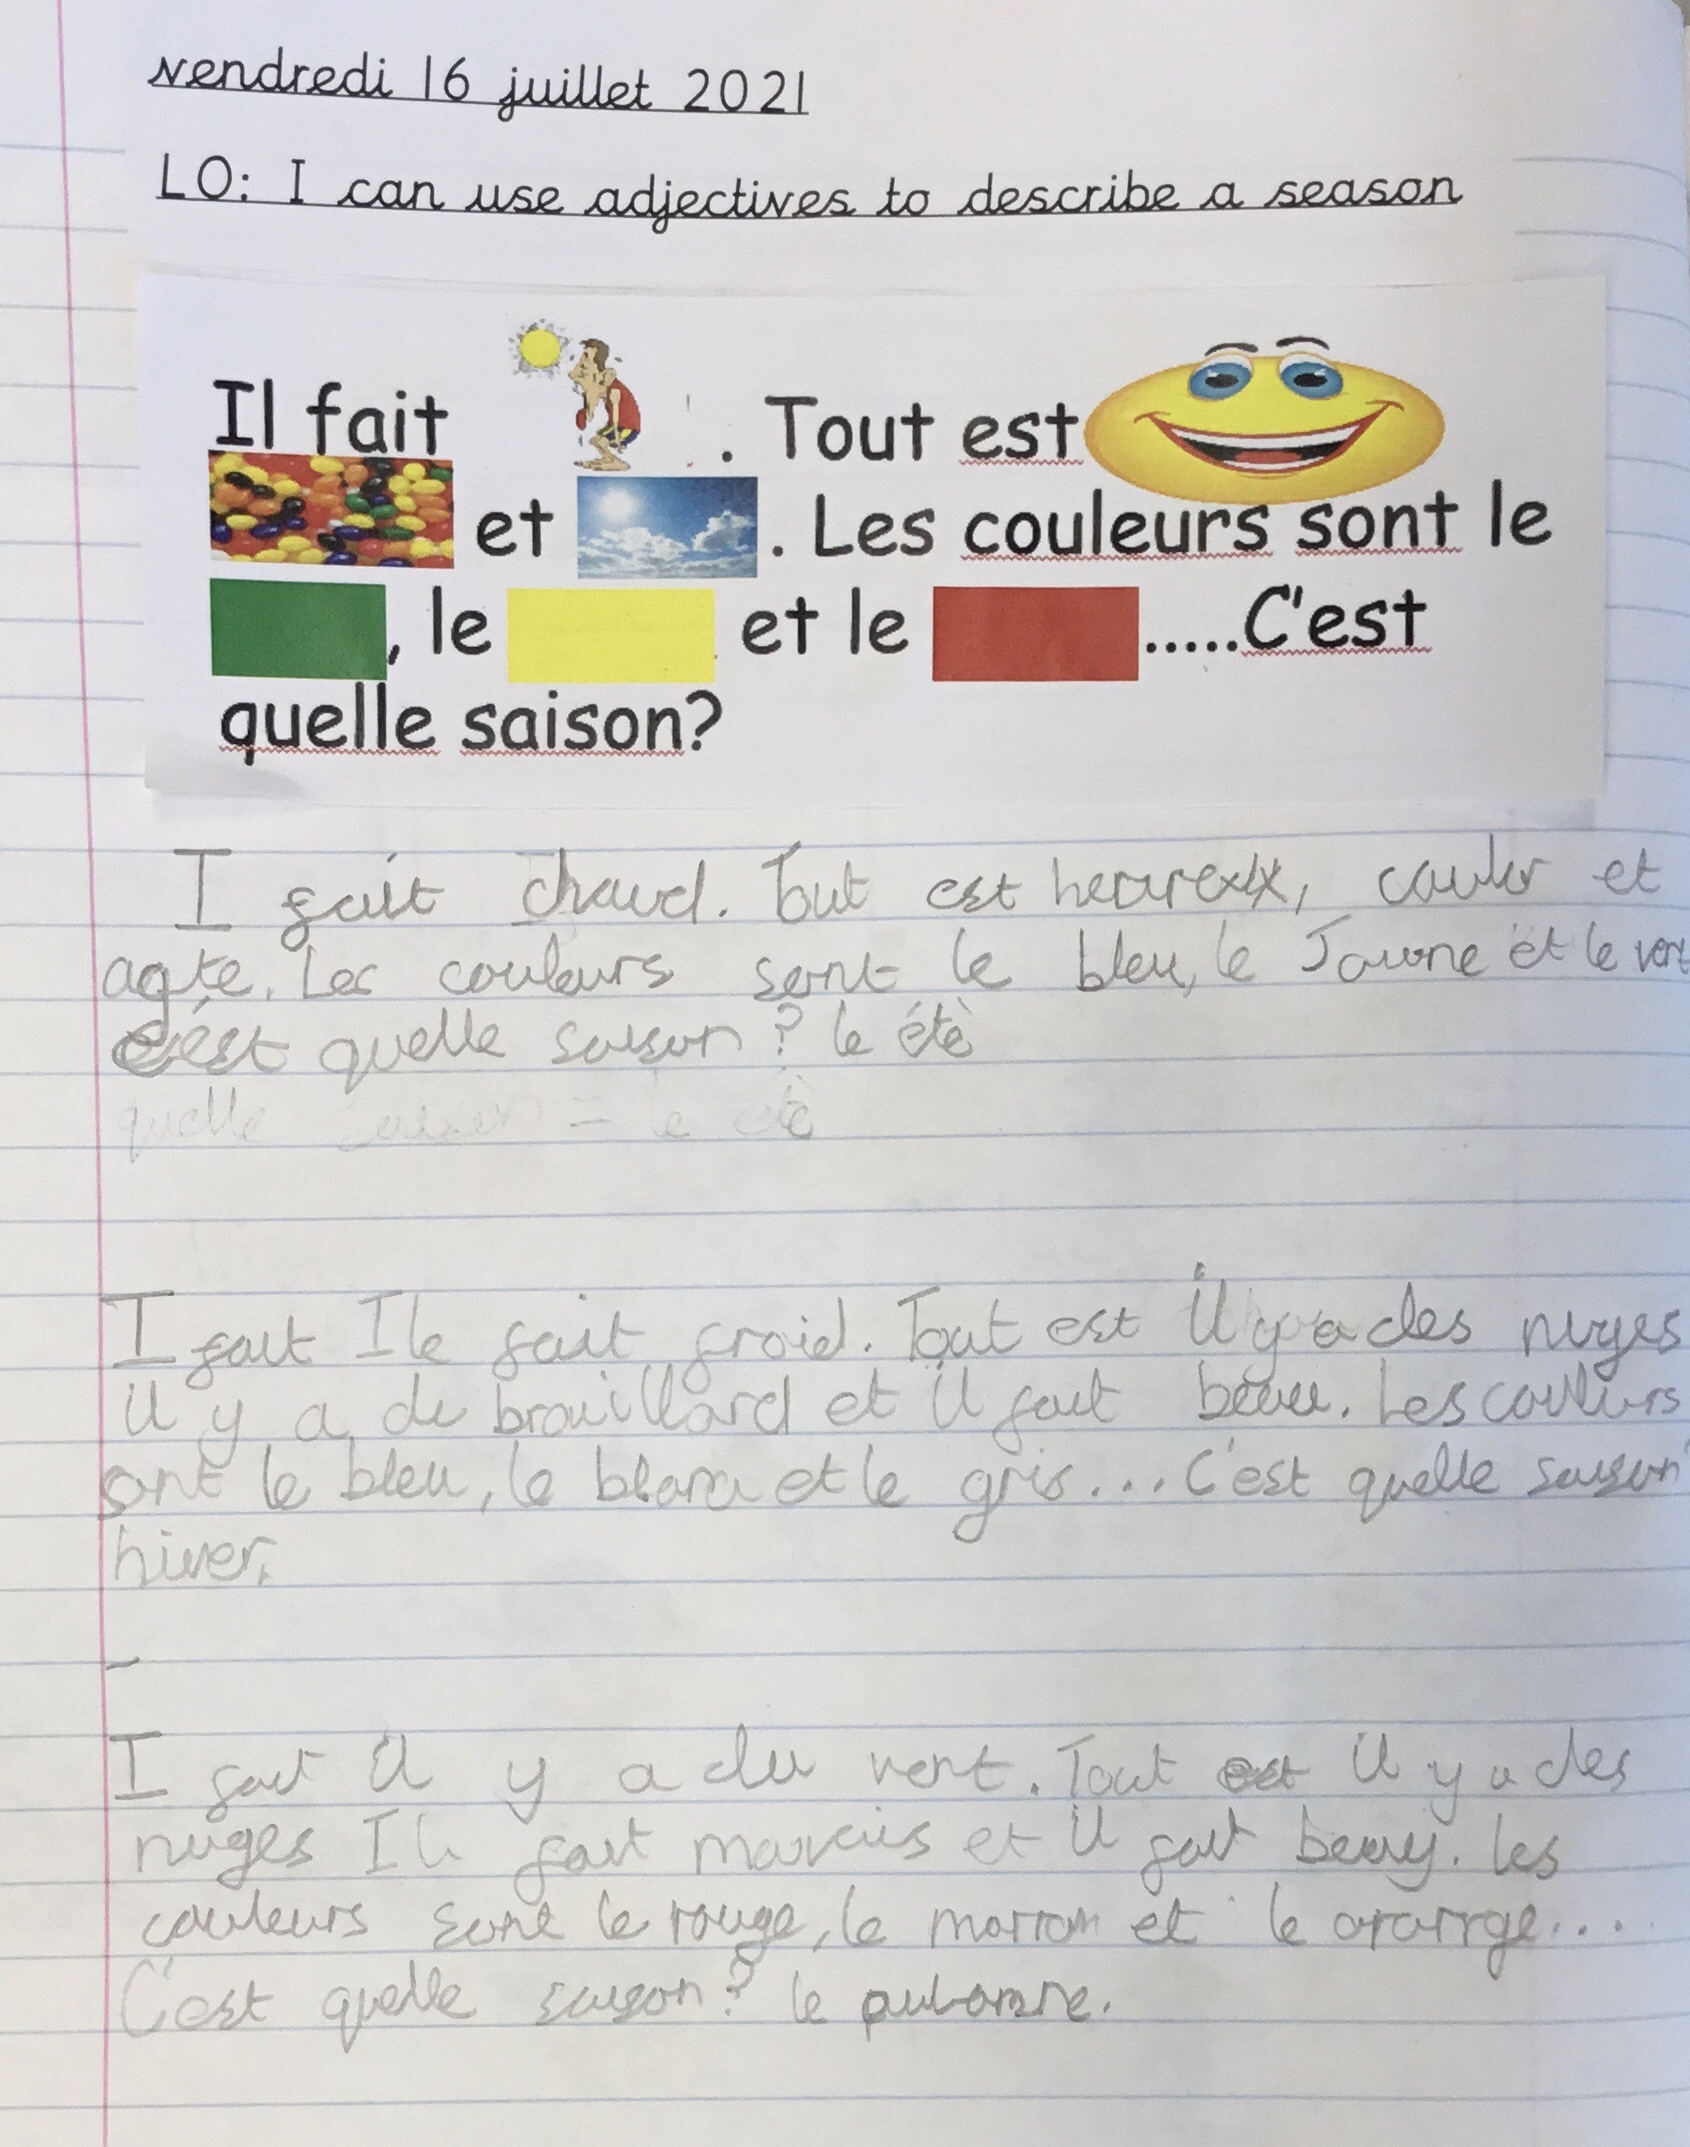 vendredi 16 juillet 2021
LO: I can use adjectives to describe a season
Il fait . Tout est
et . Les couleurs sont le
, le et le .....C'est
quelle saison?
I fait chaud. Tout est heureux, couler et
agte. Les couleurs sont le bleu, le Jaune et le vert
c'est quelle saison? le été
quelle saison = le été
I fait Ile fait froid. Tout est il y a des nuges
il y a de brouillard et il fait beau. Les coulurs
sont le bleu, le blanc et le gris... C'est quelle saison
hiver.
I fait il y a du vent. Tout est il y a des
nuges Il fait mauvais et il fait beau. Les
couleurs sont le rouge, le marron et le orange....
C'est quelle saison? le